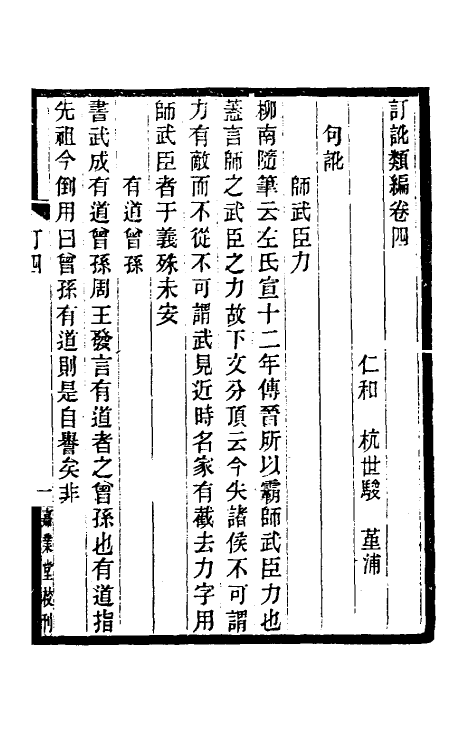 訂訛類編卷四
仁和　杭世駿　堇浦
句訛
師武臣力
柳南隨筆云左氏宣十二年傳晉所以霸師武臣力也
蓋言師之武臣之力故下文分頂云今失諸侯不可謂
力有敵而不從不可謂武見近時名家有截去力字用
師武臣者于義殊未安
有道曾孫
書武成有道曾孫周王發言有道者之曾孫也有道指
先祖今倒用曰曾孫有道則是自譽矣非
訂四
一
嘉業堂校刊